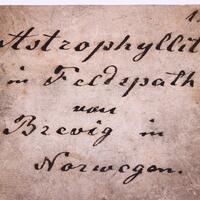 Astrophyllit
in Feldspath
von
Brevig in
Norwegen.